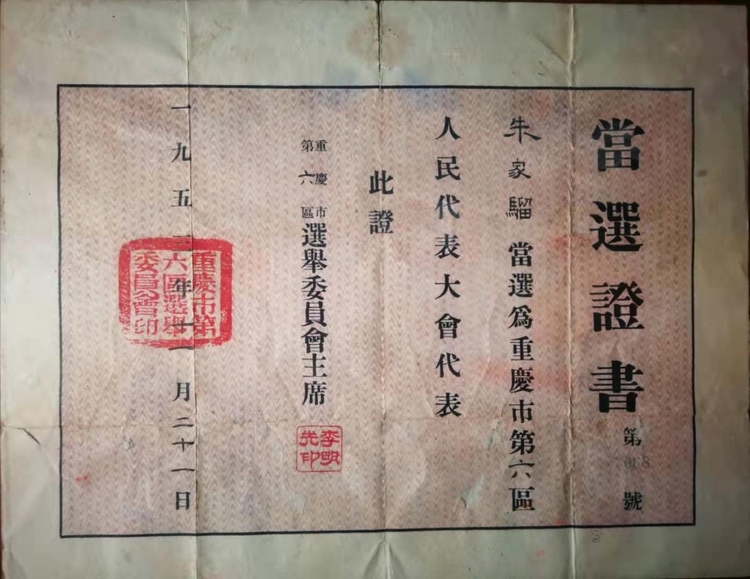 當選證書
第號
朱家騮當選為重慶市第六區
人民代表大會代表
此證
重慶市
第六區
選舉委員會主席
李明
光印
一九五三年十一月二十一日
重慶市第
六區選舉
委員會印